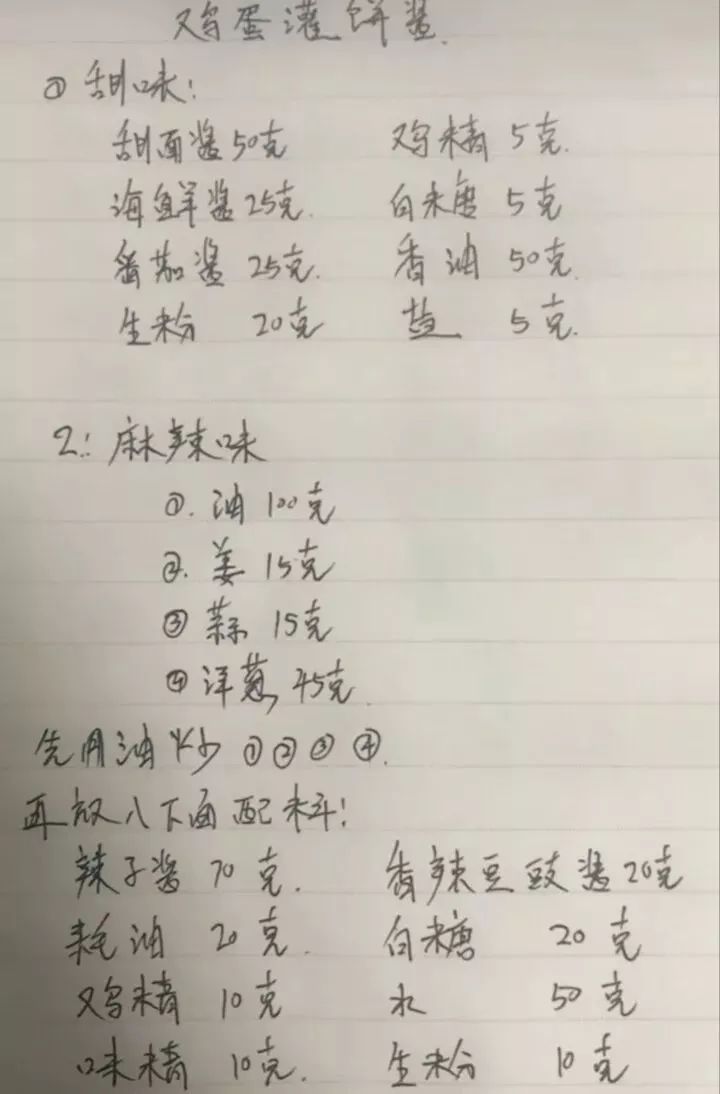 鸡蛋灌饼酱.
① 甜味:
甜面酱 50克 鸡精 5克.
海鲜酱 25克. 白米唐 5克
番茄酱 25克. 香油 50克.
生粉 20克 盐 5克.
2: 麻辣味
①. 油 100克
②. 姜 15克
③ 蒜 15克
④ 洋葱 45克.
先用油炒 ①②③④.
再放入下面配料:
辣子酱 70克. 香辣豆豉酱 20克
耗油 20克. 白糖 20克
鸡精 10克 水 50克
味精 10克. 生粉 10克